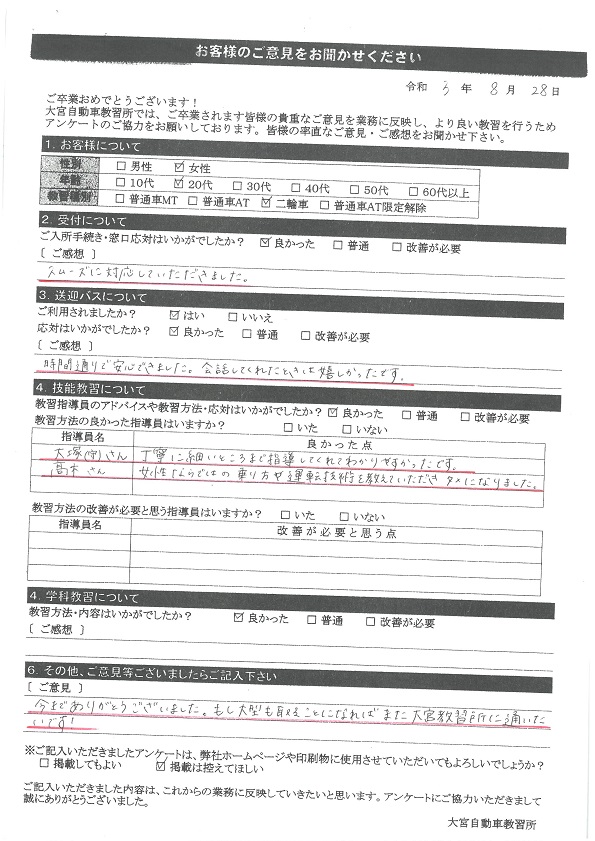 お客様のご意見をお聞かせください
令和 3 年 8 月 28 日
ご卒業おめでとうございます！
大宮自動車教習所では、ご卒業されます皆様の貴重なご意見を業務に反映し、より良い教習を行うため
アンケートのご協力をお願いしております。皆様の率直なご意見・ご感想をお聞かせ下さい。
1. お客様について
性別 □ 男性 ☑ 女性
年齢 □ 10代 ☑ 20代 □ 30代 □ 40代 □ 50代 □ 60代以上
教習種別 □ 普通車MT □ 普通車AT ☑ 二輪車 □ 普通車AT限定解除
2. 受付について
ご入所手続き・窓口応対はいかがでしたか？ ☑ 良かった □ 普通 □ 改善が必要
〔 ご感想 〕
スムーズに対応していただきました。
3. 送迎バスについて
ご利用されましたか？ ☑ はい □ いいえ
応対はいかがでしたか？ ☑ 良かった □ 普通 □ 改善が必要
〔 ご感想 〕
時間通りで安心できました。会話してくれたときは嬉しかったです。
4. 技能教習について
教習指導員のアドバイスや教習方法・応対はいかがでしたか？ ☑ 良かった □ 普通 □ 改善が必要
教習方法の良かった指導員はいますか？ □ いた □ いない
指導員名 良かった点
大塚(宇)さん 丁寧に細いところまで指導してくれてわかりやすかったです。
髙木さん 女性ならではの乗り方や運転技術を教えていただきタメになりました。
教習方法の改善が必要と思う指導員はいますか？ □ いた □ いない
指導員名 改善が必要と思う点
4. 学科教習について
教習方法・内容はいかがでしたか？ ☑ 良かった □ 普通 □ 改善が必要
〔 ご感想 〕
6. その他、ご意見等ございましたらご記入下さい
〔 ご意見 〕
今までありがとうございました。もし大型も取ることになればまた大宮教習所に通いた
いです！
※ご記入いただきましたアンケートは、弊社ホームページや印刷物に使用させていただいてもよろしいでしょうか？
□ 掲載してもよい ☑ 掲載は控えてほしい
ご記入いただきました内容は、これからの業務に反映していきたいと思います。アンケートにご協力いただきまして
誠にありがとうございました。
大宮自動車教習所